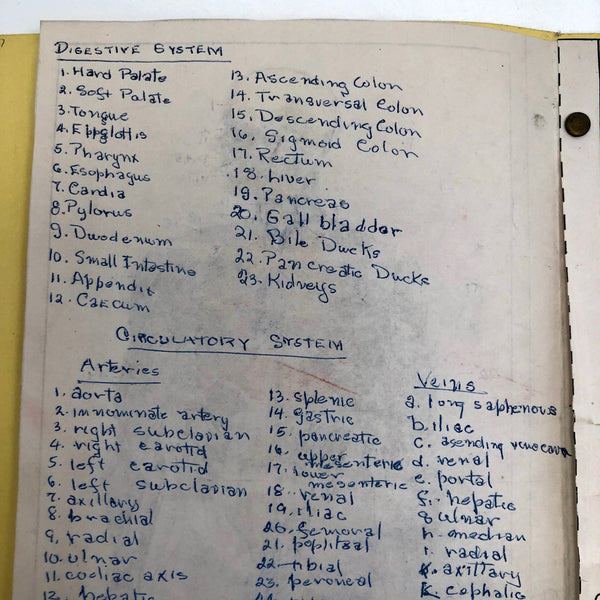 DIGESTIVE SYSTEM
1. Hard Palate
2. Soft Palate
3. Tongue
4. Eppglotis
5. Pharynx
6. Esophagus
7. Cardia
8. Pylorus
9. Dwodenum
10. Small Intestine
11. Appendix
12. CaEcum
13. Ascending Colon
14. Transversal Colon
15. Descending Colon
16. Sigmoid Colon
17. Rectum
18. Liver
19. Pancreas
20. Gall bladder
21. Bile Ducks
22. Pancreatic Ducks
23. Kidneys
CIRCULATORY SYSTEM
Arteries
1. aorta
2. innominate artery
3. right subclavian
4. right carotid
5. left carotid
6. left subclavian
7. axillary
8. brachial
9. radial
10. ulnar
11. coeliac axis
12. hepatic
13. splenic
14. gastric
15. pancreatic
16. upper mesenteric
17. lower mesenteric
18. renal
19. iliac
20. femoral
21. popliteal
22. tibial
23. peroneal
Veins
a. long saphenous
b. iliac
c. asending venecava
d. renal
e. portal
f. hepatic
g. ulnar
h. median
i. radial
axillary
k. cephalic